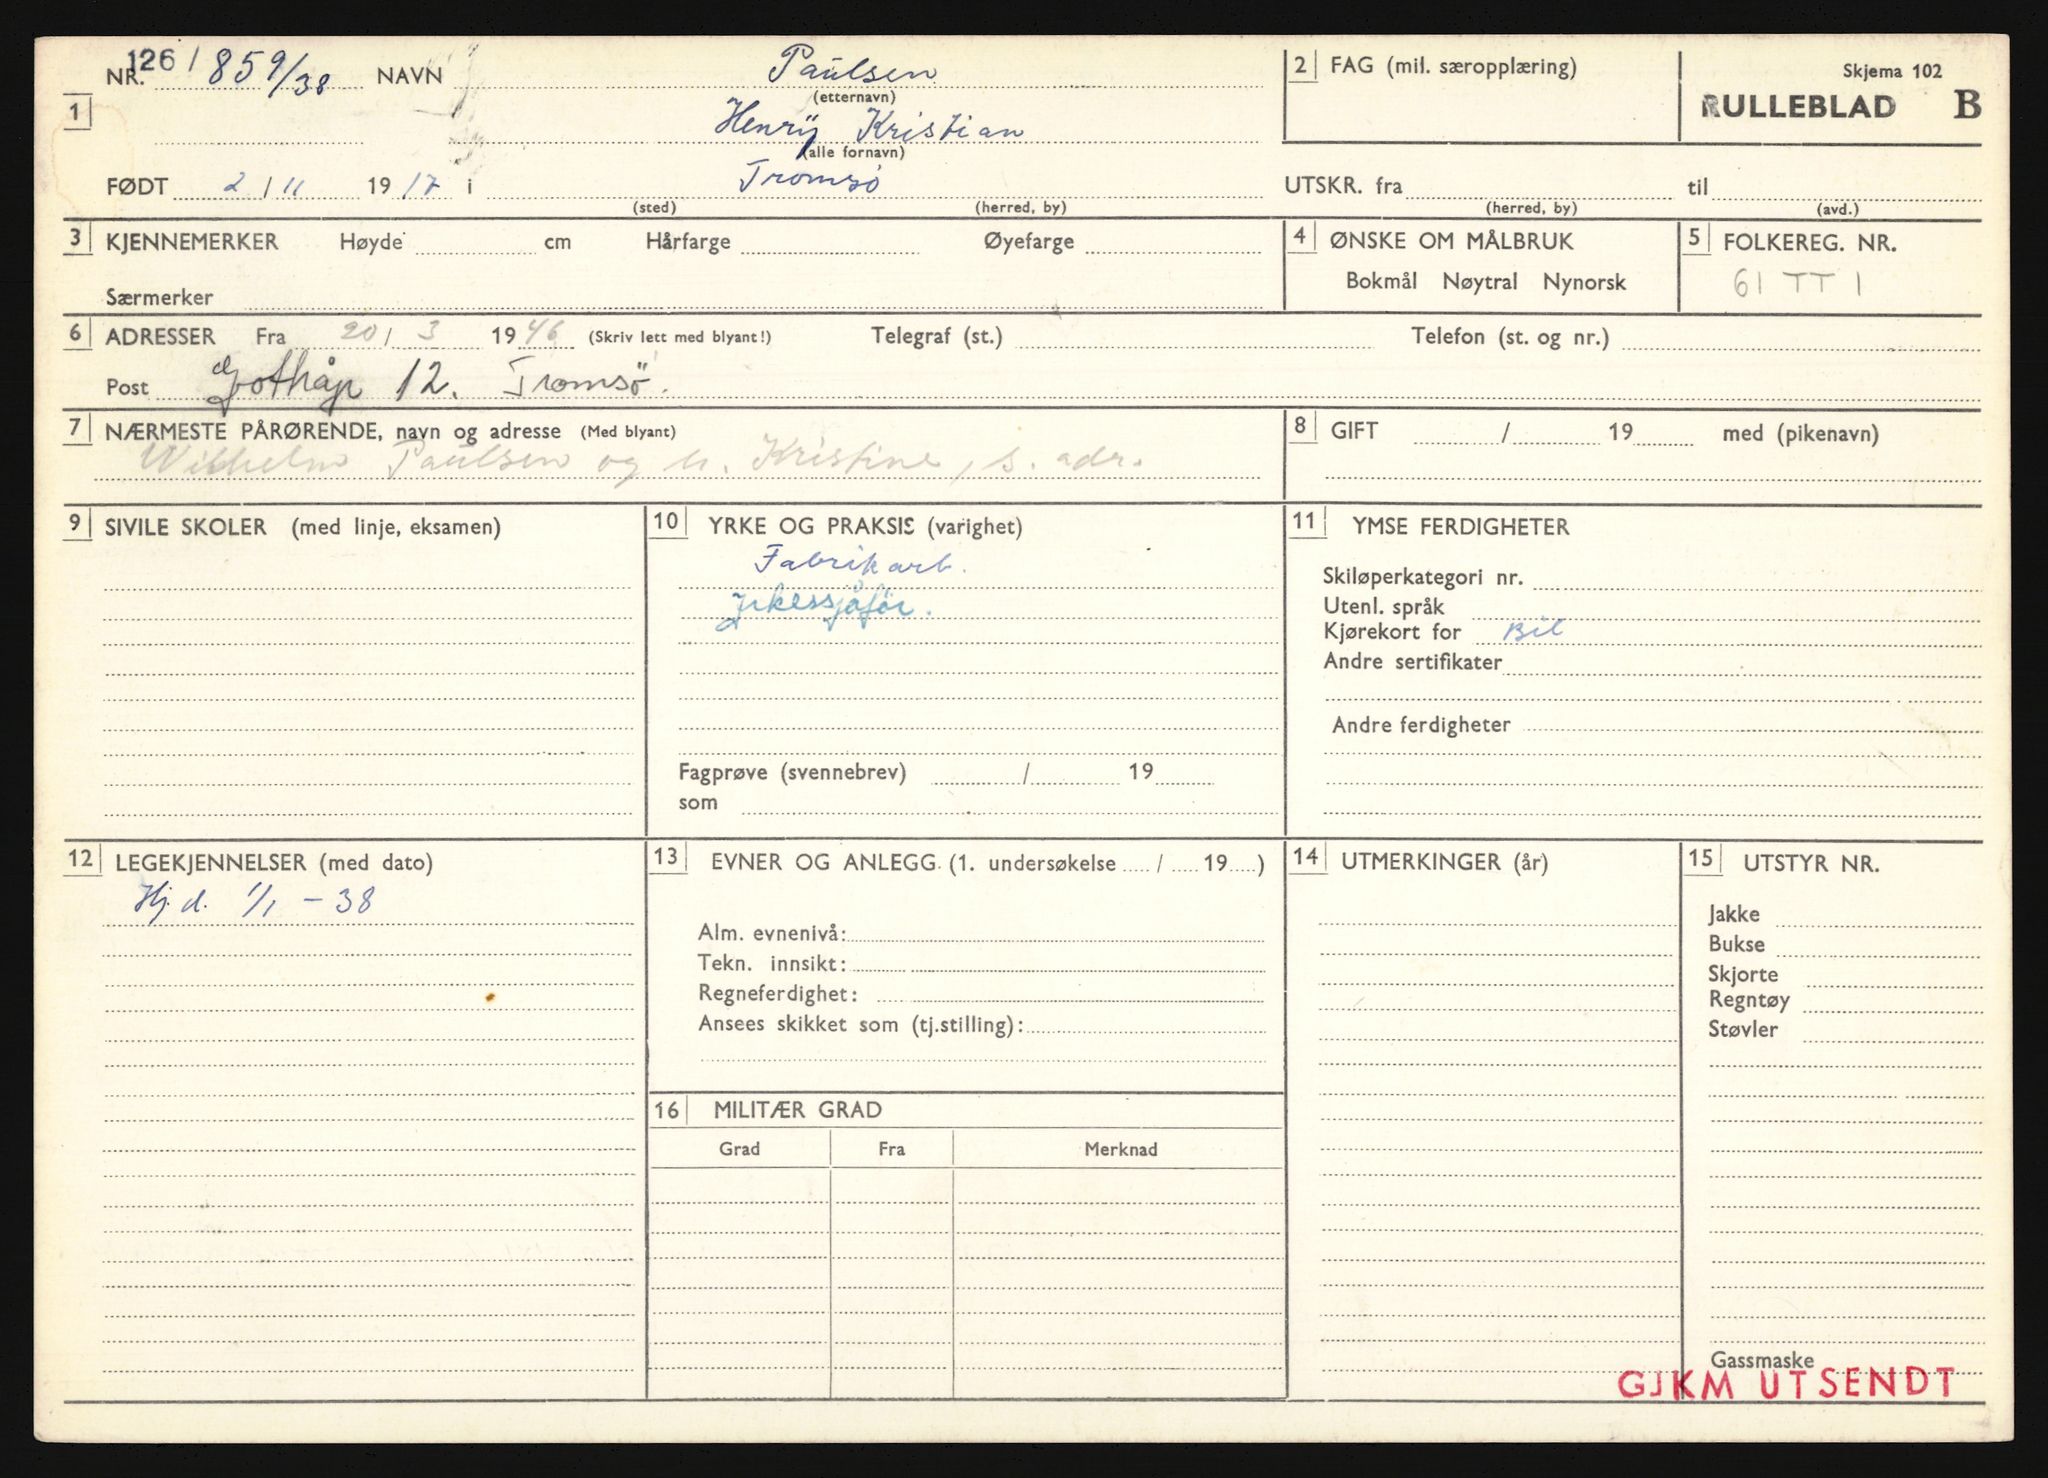 NR. 126/859/38 NAVN Paulsen
(etternavn)
2 FAG (mil. særopplæring)
Skjema 102
RULLEBLAD B
1
Henrÿ Kristian
(alle fornavn)
FØDT 2/11 1917 i Tromsø
(sted) (herred, by)
UTSKR. fra til
(herred, by) (avd.)
3 KJENNEMERKER Høyde cm Hårfarge Øyefarge
Særmerker
4 ØNSKE OM MÅLBRUK
Bokmål Nøytral Nynorsk
5 FOLKEREG. NR.
61 TT 1
6 ADRESSER Fra 20/3 1946 (Skriv lett med blyant!) Telegraf (st.) Telefon (st. og nr.)
Post Gothåp 12. Tromsö.
7 NÆRMESTE PÅRØRENDE, navn og adresse (Med blyant)
Wilhelm Paulsen og h. Kristine, s. adr.
8 GIFT / 19 med (pikenavn)
9 SIVILE SKOLER (med linje, eksamen)
10 YRKE OG PRAKSIS (varighet)
Fabrikarb.
Yrkessjåför.
Fagprøve (svennebrev) / 19
som
11 YMSE FERDIGHETER
Skiløperkategori nr.
Utenl. språk
Kjørekort for Bil
Andre sertifikater
Andre ferdigheter
12 LEGEKJENNELSER (med dato)
Hj. d. 1/1 - 38
13 EVNER OG ANLEGG. (1. undersøkelse / 19 )
Alm. evnenivå:
Tekn. innsikt:
Regneferdighet:
Ansees skikket som (tj.stilling):
16 MILITÆR GRAD
Grad Fra Merknad
14 UTMERKINGER (år)
15 UTSTYR NR.
Jakke
Bukse
Skjorte
Regntøy
Støvler
Gassmaske
GJKM UTSENDT